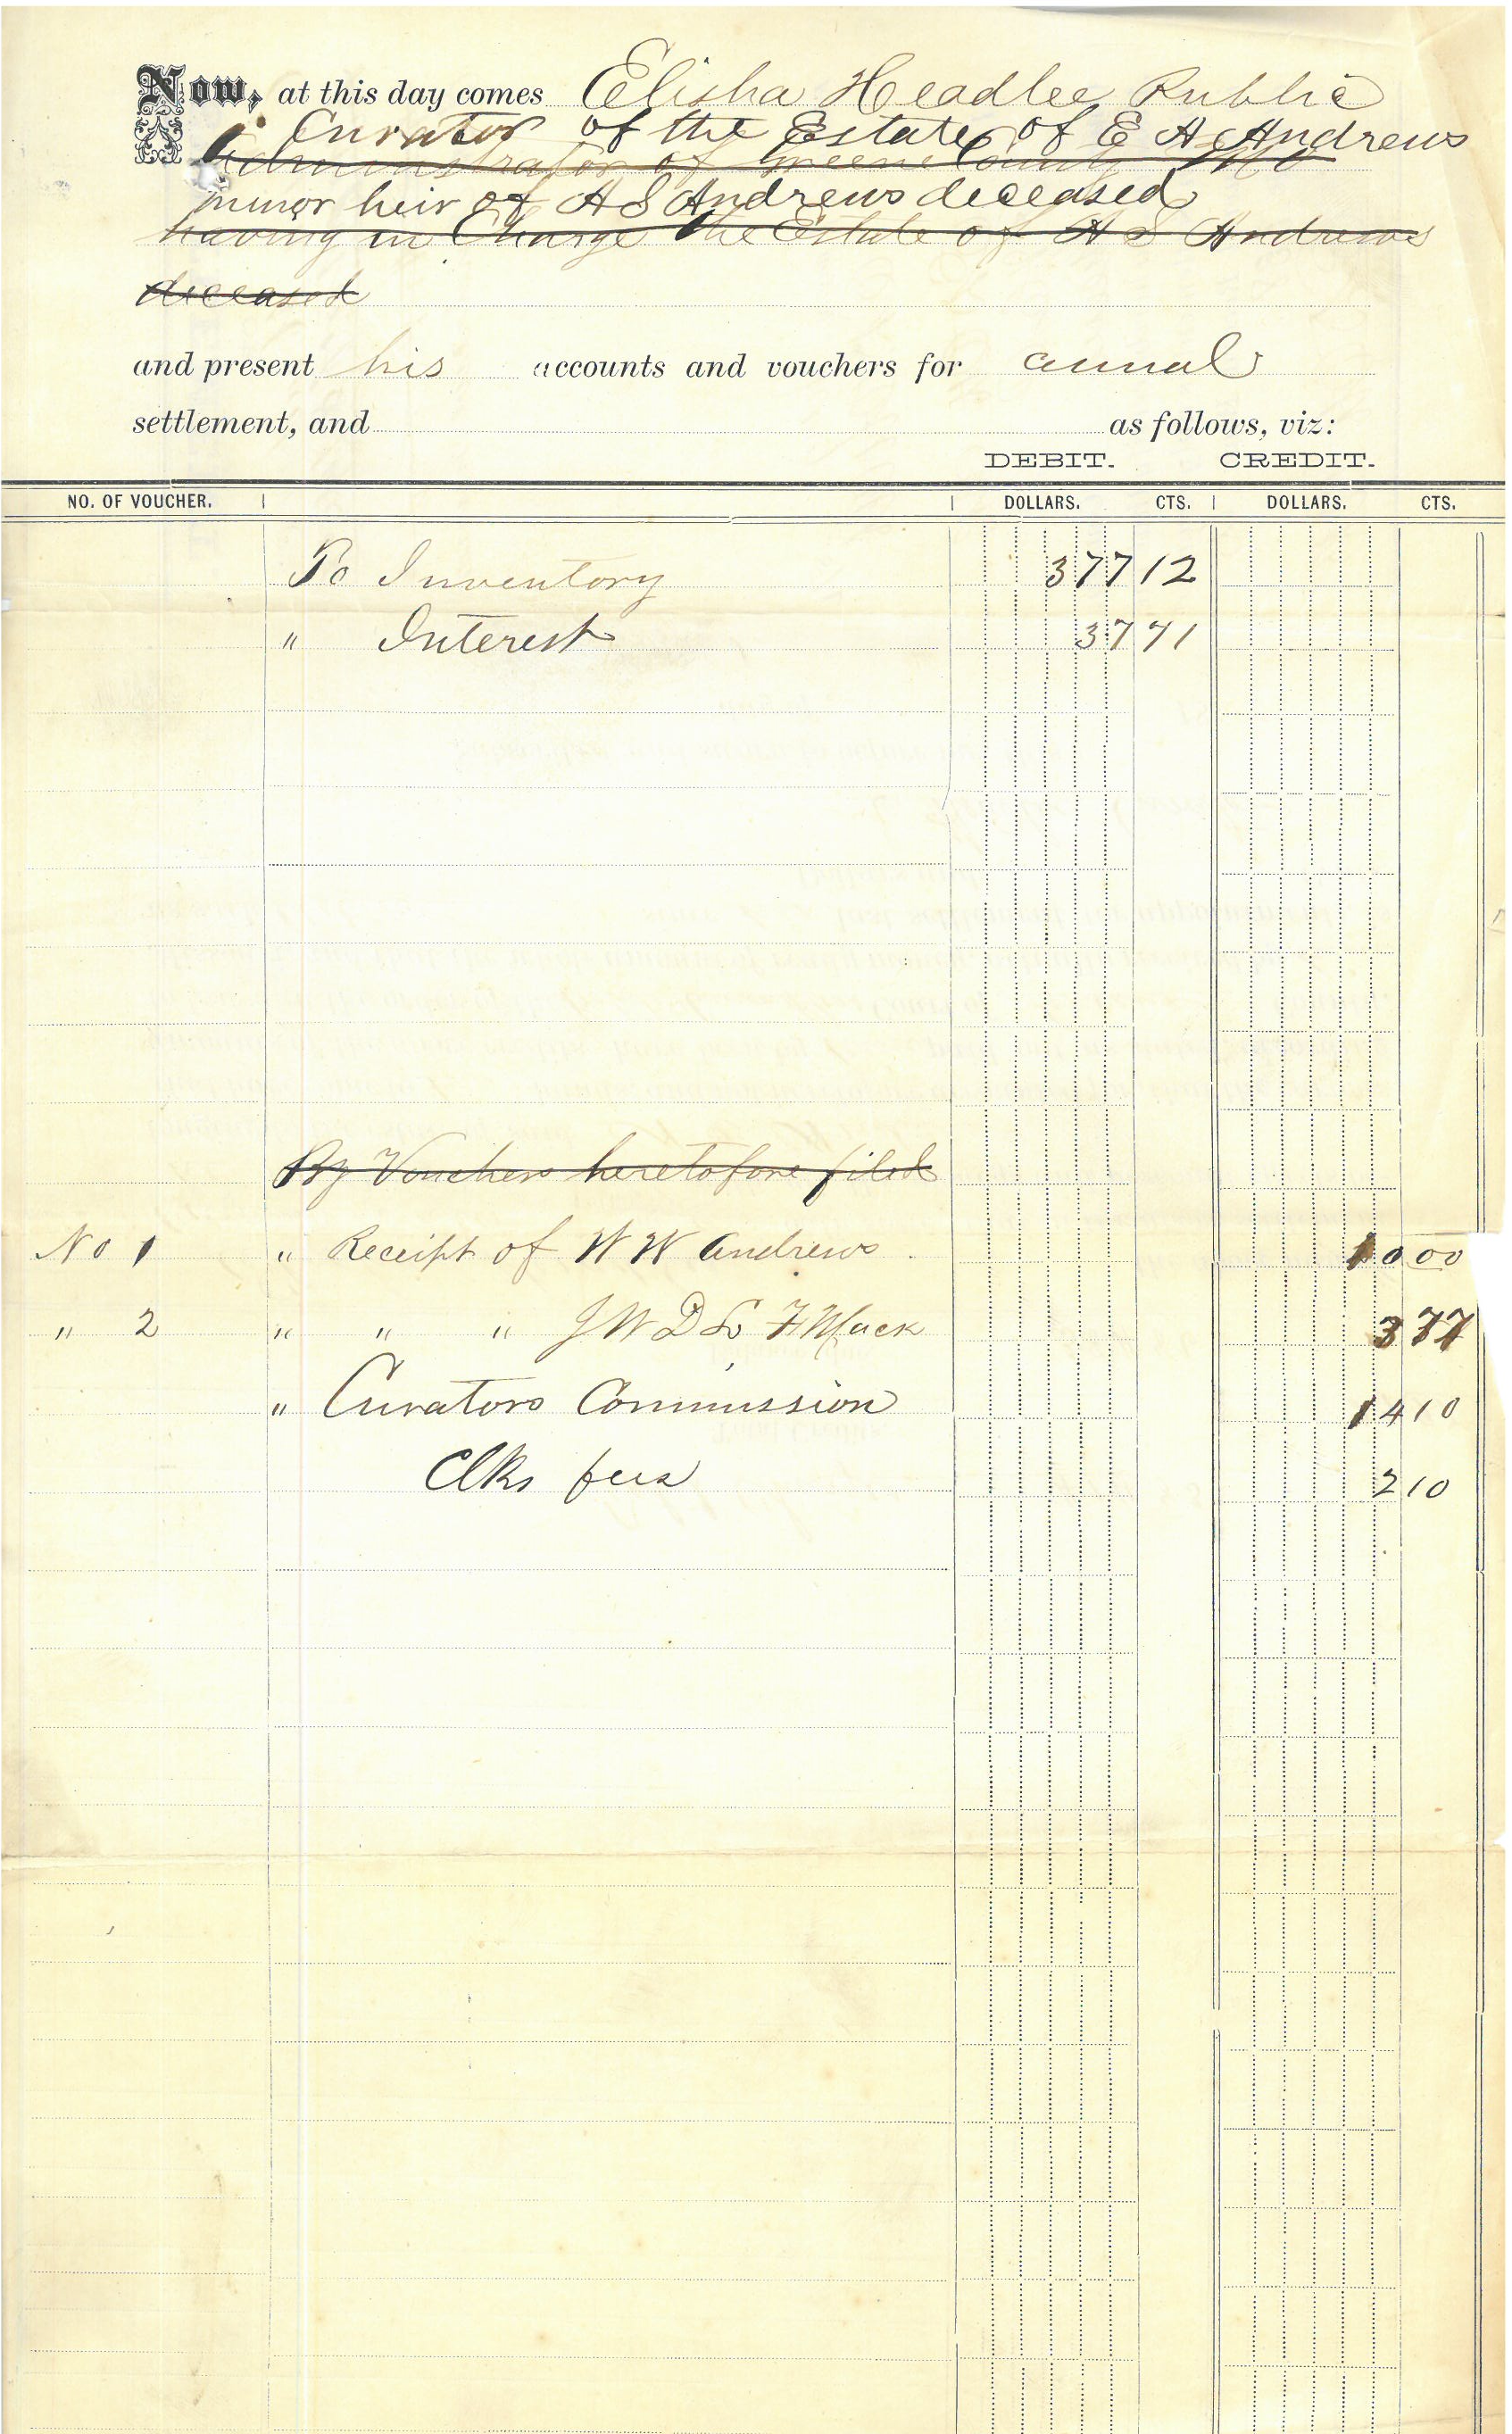 Now, at this day comes Elisha Headlee Public
Curator of the Estate of E A Andrews
Administrator of Greene County Mo
minor heir of A S Andrews deceased
having in Charge the Estate of A S Andrews
deceased
and present his accounts and vouchers for annual
settlement, and as follows, viz:
DEBIT. CREDIT.
NO. OF VOUCHER. DOLLARS. CTS. DOLLARS. CTS.
To Inventory 377 12
" Interest 37 71
By Vouchers heretofore filed
No 1 " Receipt of W W Andrews 10 00
" 2 " " " J W D L F Mack 3 77
" Curators Commission 14 10
Clks fees 2 10